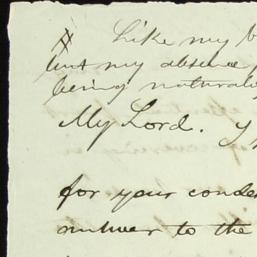 Like my
but my absence
being natural
My Lord. Y
for your conde
to the